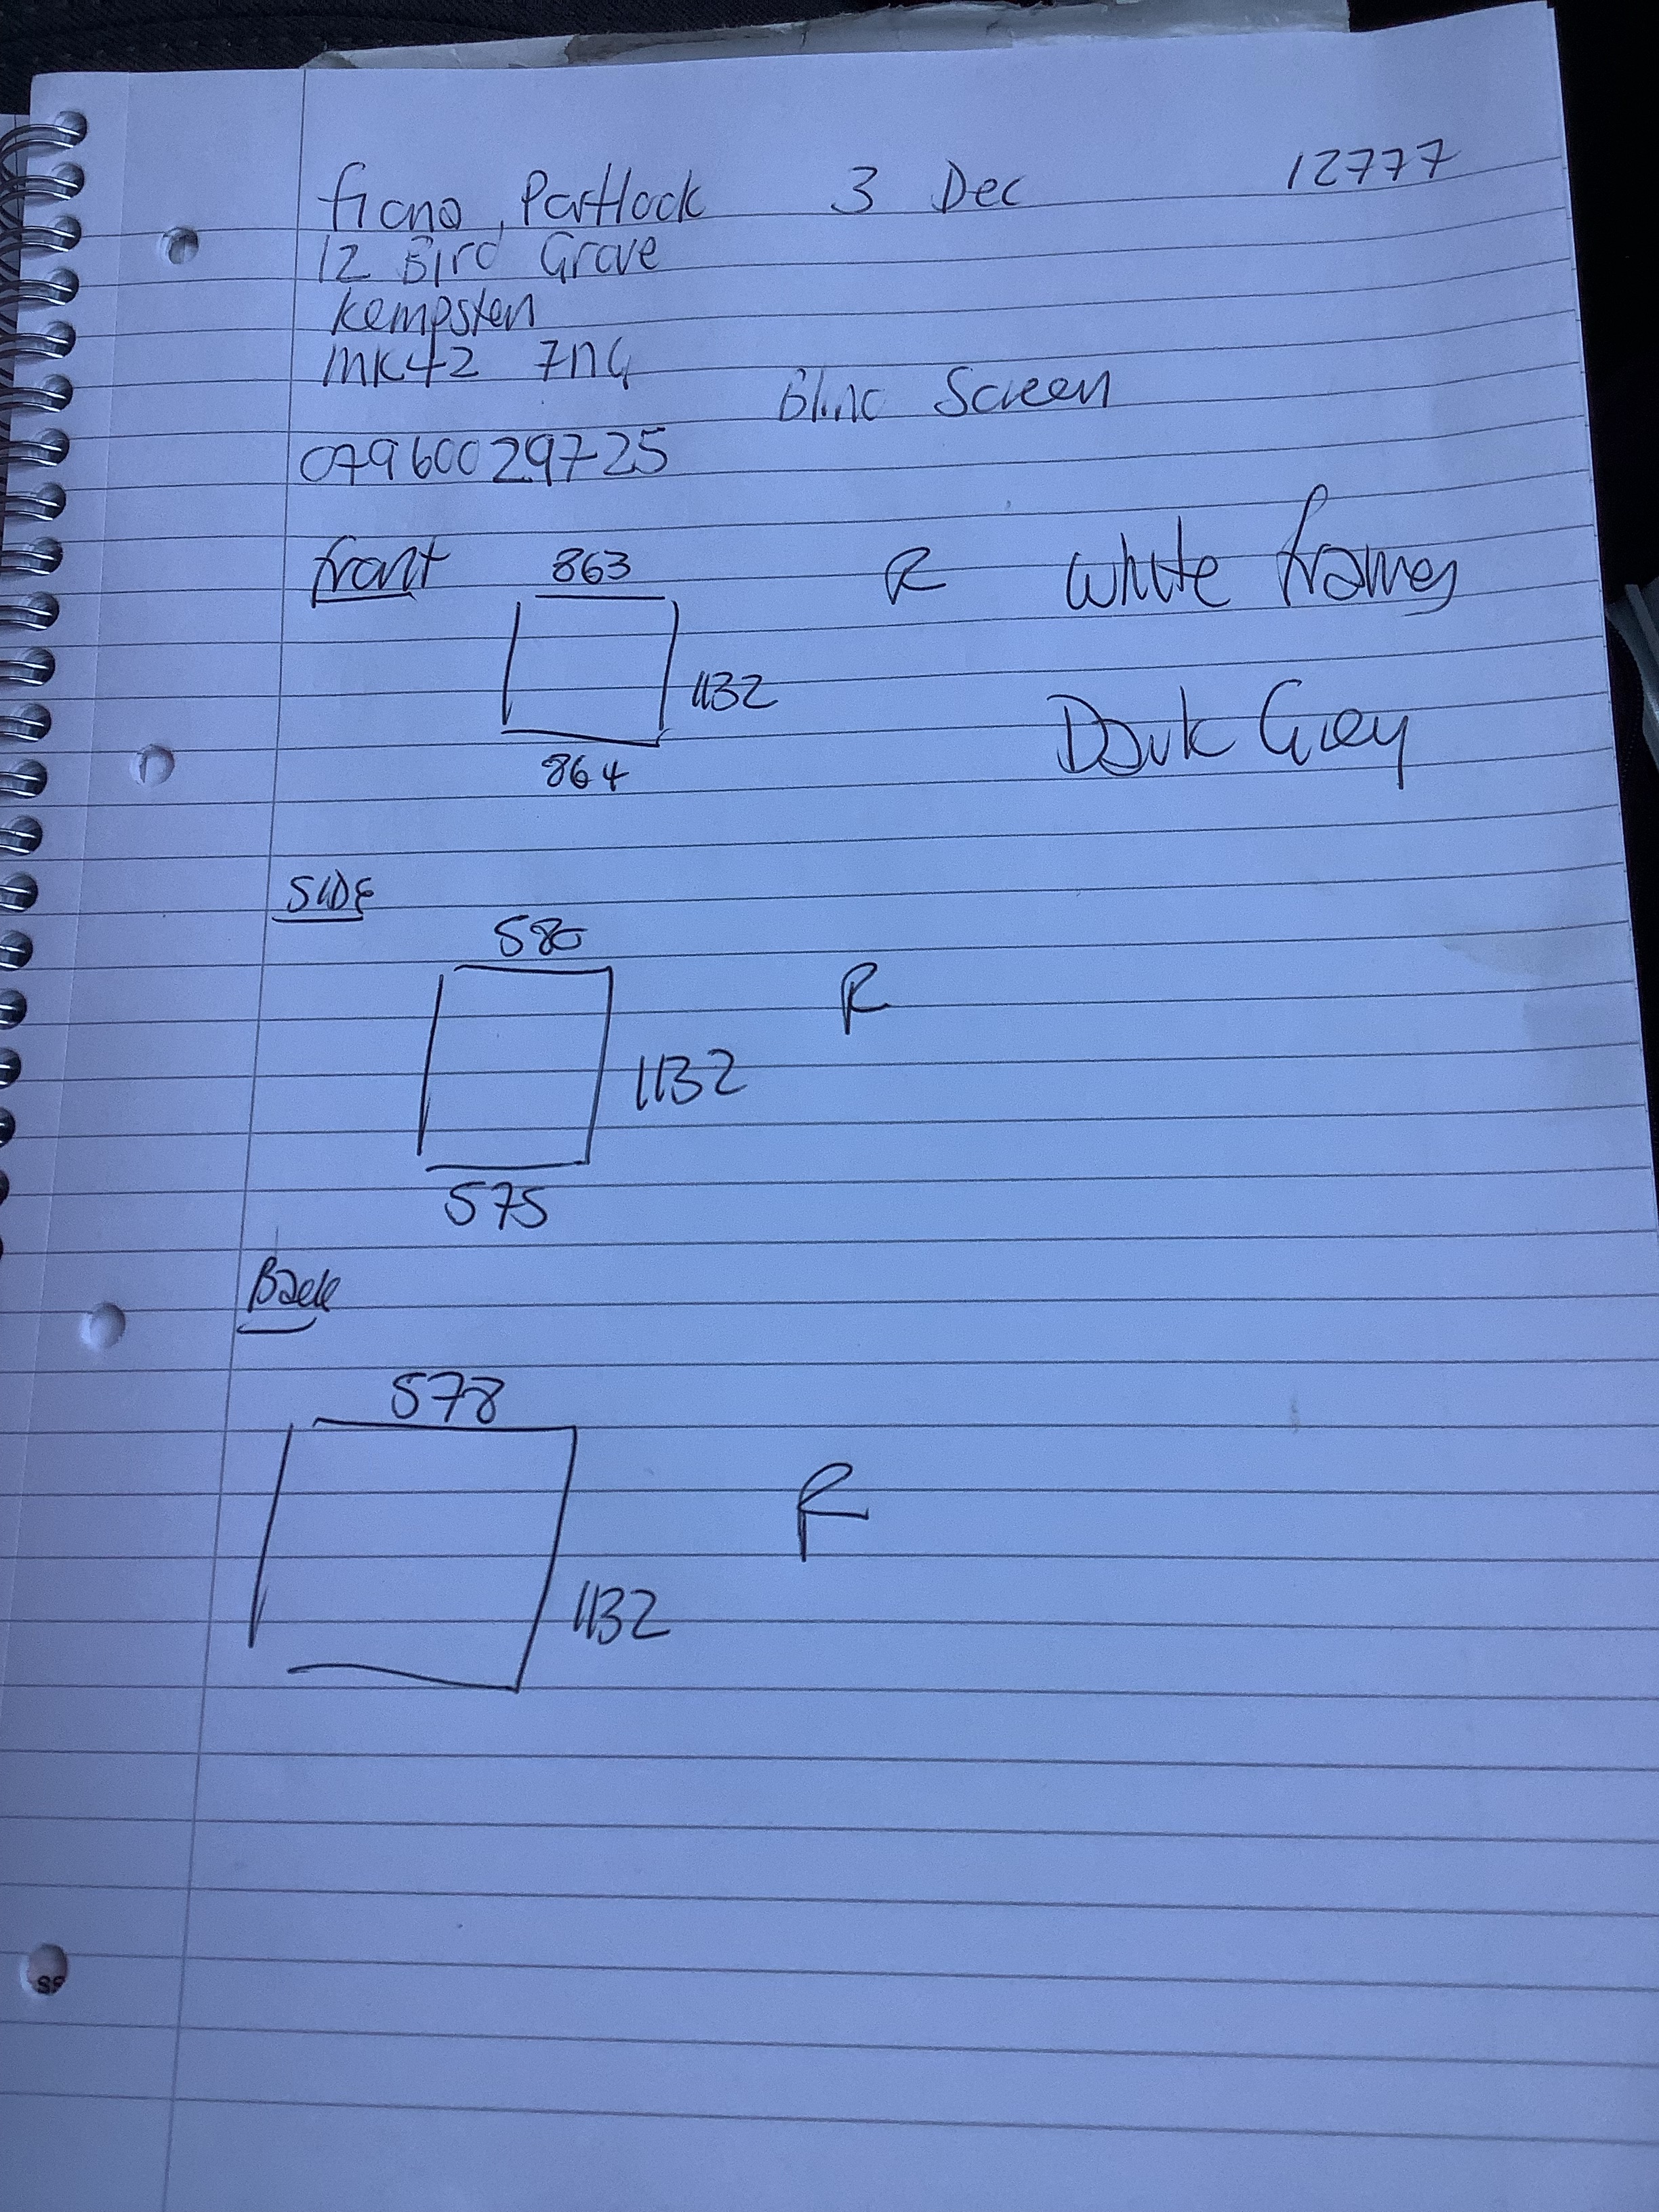 fiona Partlock 3 Dec 12777
12 Bird Grove
Kempston
MK42 7NG
Blinc Screen
07960029725
front 863 R White frames
1132
864
Dark Grey
SIDE
580
R
1132
575
Back
578
R
1132